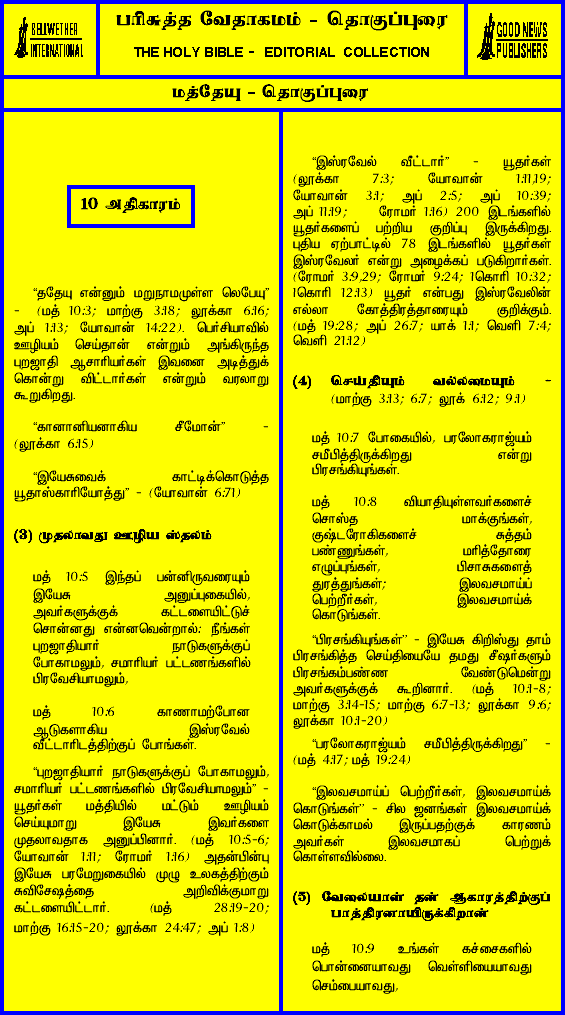 BELLWETHER
INTERNATIONAL
பரிசுத்த வேதாகமம் - தொகுப்புரை
THE HOLY BIBLE - EDITORIAL COLLECTION
GOOD NEWS
PUBLISHERS
மத்தேயு - தொகுப்புரை
10 அதிகாரம்
"ததேயு என்னும் மறுநாமமுள்ள லெபேயு"
- (மத் 10:3; மாற்கு 3:18; லூக்கா 6:16;
அப் 1:13; யோவான் 14:22). பெர்சியாவில்
ஊழியம் செய்தான் என்றும் அங்கிருந்த
புறஜாதி ஆசாரியர்கள் இவனை அடித்துக்
கொன்று விட்டார்கள் என்றும் வரலாறு
கூறுகிறது.
"கானானியனாகிய சீமோன்" -
(லூக்கா 6:15)
"இயேசுவைக் காட்டிக்கொடுத்த
யூதாஸ்காரியோத்து" - (யோவான் 6:71)
(3) முதலாவது ஊழிய ஸ்தலம்
மத் 10:5 இந்தப் பன்னிருவரையும்
இயேசு அனுப்புகையில்,
அவர்களுக்குக் கட்டளையிட்டுச்
சொன்னது என்னவென்றால்: நீங்கள்
புறஜாதியார் நாடுகளுக்குப்
போகாமலும், சமாரியர் பட்டணங்களில்
பிரவேசியாமலும்,
மத் 10:6 காணாமற்போன
ஆடுகளாகிய இஸ்ரவேல்
வீட்டாரிடத்திற்குப் போங்கள்.
"புறஜாதியார் நாடுகளுக்குப் போகாமலும்,
சமாரியர் பட்டணங்களில் பிரவேசியாமலும்" -
யூதர்கள் மத்தியில் மட்டும் ஊழியம்
செய்யுமாறு இயேசு இவர்களை
முதலாவதாக அனுப்பினார். (மத் 10:5-6;
யோவான் 1:11; ரோமர் 1:16) அதன்பின்பு
இயேசு பரமேறுகையில் முழு உலகத்திற்கும்
சுவிசேஷத்தை அறிவிக்குமாறு
கட்டளையிட்டார். (மத் 28:19-20;
மாற்கு 16:15-20; லூக்கா 24:47; அப் 1:8)
"இஸ்ரவேல் வீட்டார்" - யூதர்கள்
(லூக்கா 7:3; யோவான் 1:11,19;
யோவான் 3:1; அப் 2:5; அப் 10:39;
அப் 11:19; ரோமர் 1:16) 200 இடங்களில்
யூதர்களைப் பற்றிய குறிப்பு இருக்கிறது.
புதிய ஏற்பாட்டில் 78 இடங்களில் யூதர்கள்
இஸ்ரவேலர் என்று அழைக்கப் படுகிறார்கள்.
(ரோமர் 3:9,29; ரோமர் 9:24; 1கொரி 10:32;
1கொரி 12:13) யூதர் என்பது இஸ்ரவேலின்
எல்லா கோத்திரத்தாரையும் குறிக்கும்.
(மத் 19:28; அப் 26:7; யாக் 1:1; வெளி 7:4;
வெளி 21:12)
(4) செய்தியும் வல்லமையும் -
(மாற்கு 3:13; 6:7; லூக் 6:12; 9:1)
மத் 10:7 போகையில், பரலோகராஜ்யம்
சமீபித்திருக்கிறது என்று
பிரசங்கியுங்கள்.
மத் 10:8 வியாதியுள்ளவர்களைச்
சொஸ்த மாக்குங்கள்,
குஷ்டரோகிகளைச் சுத்தம்
பண்ணுங்கள், மரித்தோரை
எழுப்புங்கள், பிசாசுகளைத்
துரத்துங்கள்; இலவசமாய்ப்
பெற்றீர்கள், இலவசமாய்க்
கொடுங்கள்.
"பிரசங்கியுங்கள்" - இயேசு கிறிஸ்து தாம்
பிரசங்கித்த செய்தியையே தமது சீஷர்களும்
பிரசங்கம்பண்ண வேண்டுமென்று
அவர்களுக்குக் கூறினார். (மத் 10:1-8;
மாற்கு 3:14-15; மாற்கு 6:7-13; லூக்கா 9:6;
லூக்கா 10:1-20)
"பரலோகராஜ்யம் சமீபித்திருக்கிறது" -
(மத் 4:17; மத் 19:24)
"இலவசமாய்ப் பெற்றீர்கள், இலவசமாய்க்
கொடுங்கள்" - சில ஜனங்கள் இலவசமாய்க்
கொடுக்காமல் இருப்பதற்குக் காரணம்
அவர்கள் இலவசமாகப் பெற்றுக்
கொள்ளவில்லை.
(5) வேலையாள் தன் ஆகாரத்திற்குப்
பாத்திரனாயிருக்கிறான்
மத் 10:9 உங்கள் கச்சைகளில்
பொன்னையாவது வெள்ளியையாவது
செம்பையாவது,